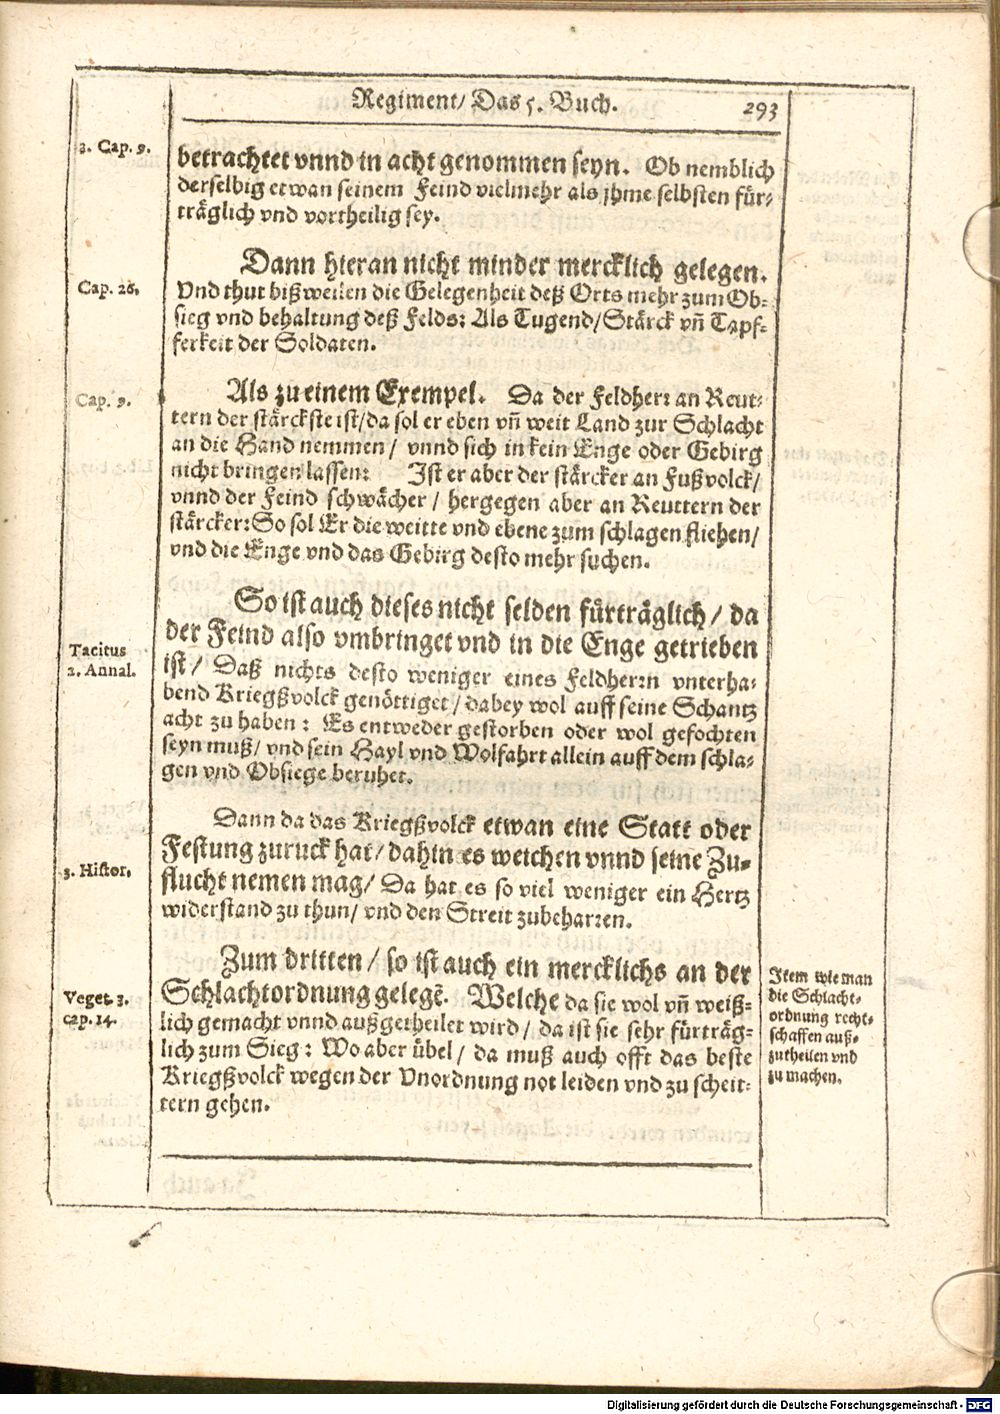 Regiment/ Das 5. Buch.
293
3. Cap. 9.
betrachtet vnnd in acht genommen seyn. Ob nemblich
derselbig etwan seinem Feind vielmehr als jhme selbsten für-
träglich vnd vortheilig sey.
Dann hieran nicht minder mercklich gelegen.
Cap. 26.
Vnd thut bißweilen die Gelegenheit deß Orts mehr zum Ob-
sieg vnd behaltung deß Felds: Als Tugend/ Stärck vñ Tapf-
ferkeit der Soldaten.
Cap. 9.
Als zu einem Exempel. Da der Feldherr an Reut-
tern der stärckste ist/ da sol er eben vñ weit Land zur Schlacht
an die Hand nemmen/ vnnd sich in kein Enge oder Gebirg
nicht bringen lassen: Ist er aber der stärcker an Fußvolck/
vnnd der Feind schwächer/ hergegen aber an Reuttern der
stärcker: So sol Er die weitte vnd ebene zum schlagen fliehen/
vnd die Enge vnd das Gebirg desto mehr suchen.
So ist auch dieses nicht selden fürträglich/ da
der Feind also vmbringet vnd in die Enge getrieben
Tacitus
2. Annal.
ist/ Daß nichts desto weniger eines Feldherrn vnterha-
bend Kriegßvolck genöttiget/ dabey wol auff seine Schantz
acht zu haben: Es entweder gestorben oder wol gefochten
seyn muß/ vnd sein Hayl vnd Wolfahrt allein auff dem schla-
gen vnd Obsiege beruhet.
Dann da das Kriegßvolck etwan eine Statt oder
Festung zuruck hat/ dahin es weichen vnnd seine Zu-
3. Histor.
flucht nemen mag/ Da hat es so viel weniger ein Hertz
widerstand zu thun/ vnd den Streit zubeharren.
Zum dritten/ so ist auch ein mercklichs an der
Schlachtordnung gelegẽ. Welche da sie wol vñ weiß-
Veget. 3.
cap. 14.
lich gemacht vnnd außgetheilet wird/ da ist sie sehr fürträg-
lich zum Sieg: Wo aber übel/ da muß auch offt das beste
Kriegßvolck wegen der Vnordnung not leiden vnd zu scheit-
tern gehen.
Item wie man
die Schlacht-
ordnung recht-
schaffen auß-
zutheilen vnd
zu machen.
Digitalisierung gefördert durch die Deutsche Forschungsgemeinschaft - DFG